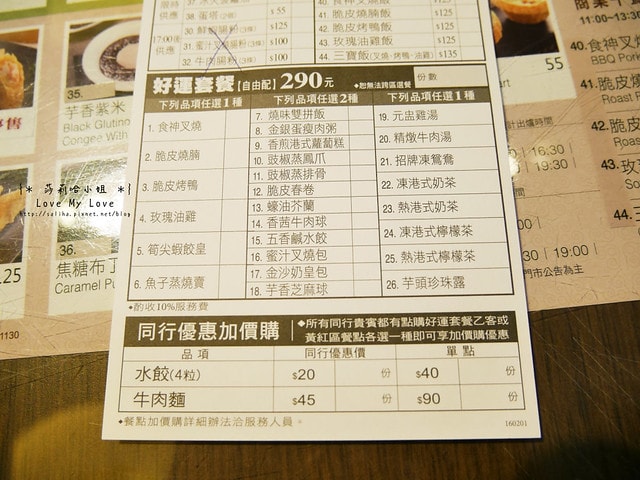 供應
38. 蛋塔
$55
$125
41. 脆皮燒腩飯
$125
30. 鮮
$100
42. 脆皮烤鴨飯
$125
17:00後
供應
31. 蜜汁
$100
43. 玫瑰油雞飯
$125
32. 牛
$100
44. 三寶飯(叉燒·烤鴨·油雞)
$135
好運套餐【自由配】290元
◆恕無法跨區選餐
份數
下列品項任選1種
下列品項任選2種
下列品項任選1種
1. 食神叉燒
2. 脆皮燒腩
3. 脆皮烤鴨
4. 玫瑰油雞
5. 筍尖蝦餃皇
6. 魚子蒸燒賣
7. 燒味雙拼飯
8. 金銀蛋瘦肉粥
9. 香煎港式蘿蔔糕
10. 豉椒蒸鳳爪
11. 豉椒蒸排骨
12. 脆皮春卷
13. 蠔油芥蘭
14. 香茜牛肉球
15. 五香鹹水餃
16. 蜜汁叉燒包
17. 金沙奶皇包
18. 芋香芝麻球
19. 元盅雞湯
20. 精燉牛肉湯
21. 招牌凍鴛鴦
22. 凍港式奶茶
23. 熱港式奶茶
24. 凍港式檸檬茶
25. 熱港式檸檬茶
26. 芋頭珍珠露
◆酌收10%服務費
同行優惠加價購
◆所有同行貴賓都有點購好運套餐乙客或
黃紅區餐點各選一種即可享加價購優惠
品項
同行優惠價
單點
水餃(4粒)
$20
份
$40
份
牛肉麵
$45
份
$90
份
◆餐點加價購詳細辦法洽服務人員。
160201
35.
芋香紫米
Black Glutino
Congee With
36.
焦糖布丁
Caramel Pu
1130
{* 莎莉哈小姐 *}
Love My Love
http://saliha.pixnet.net/blog
55
11:00~13:30
40. 食神叉
BBQ Pork
41. 脆皮
Roast P
42. 脆皮
Roas
43. 玫
44. 三
16:30
19:30
19:00
門市公告為主